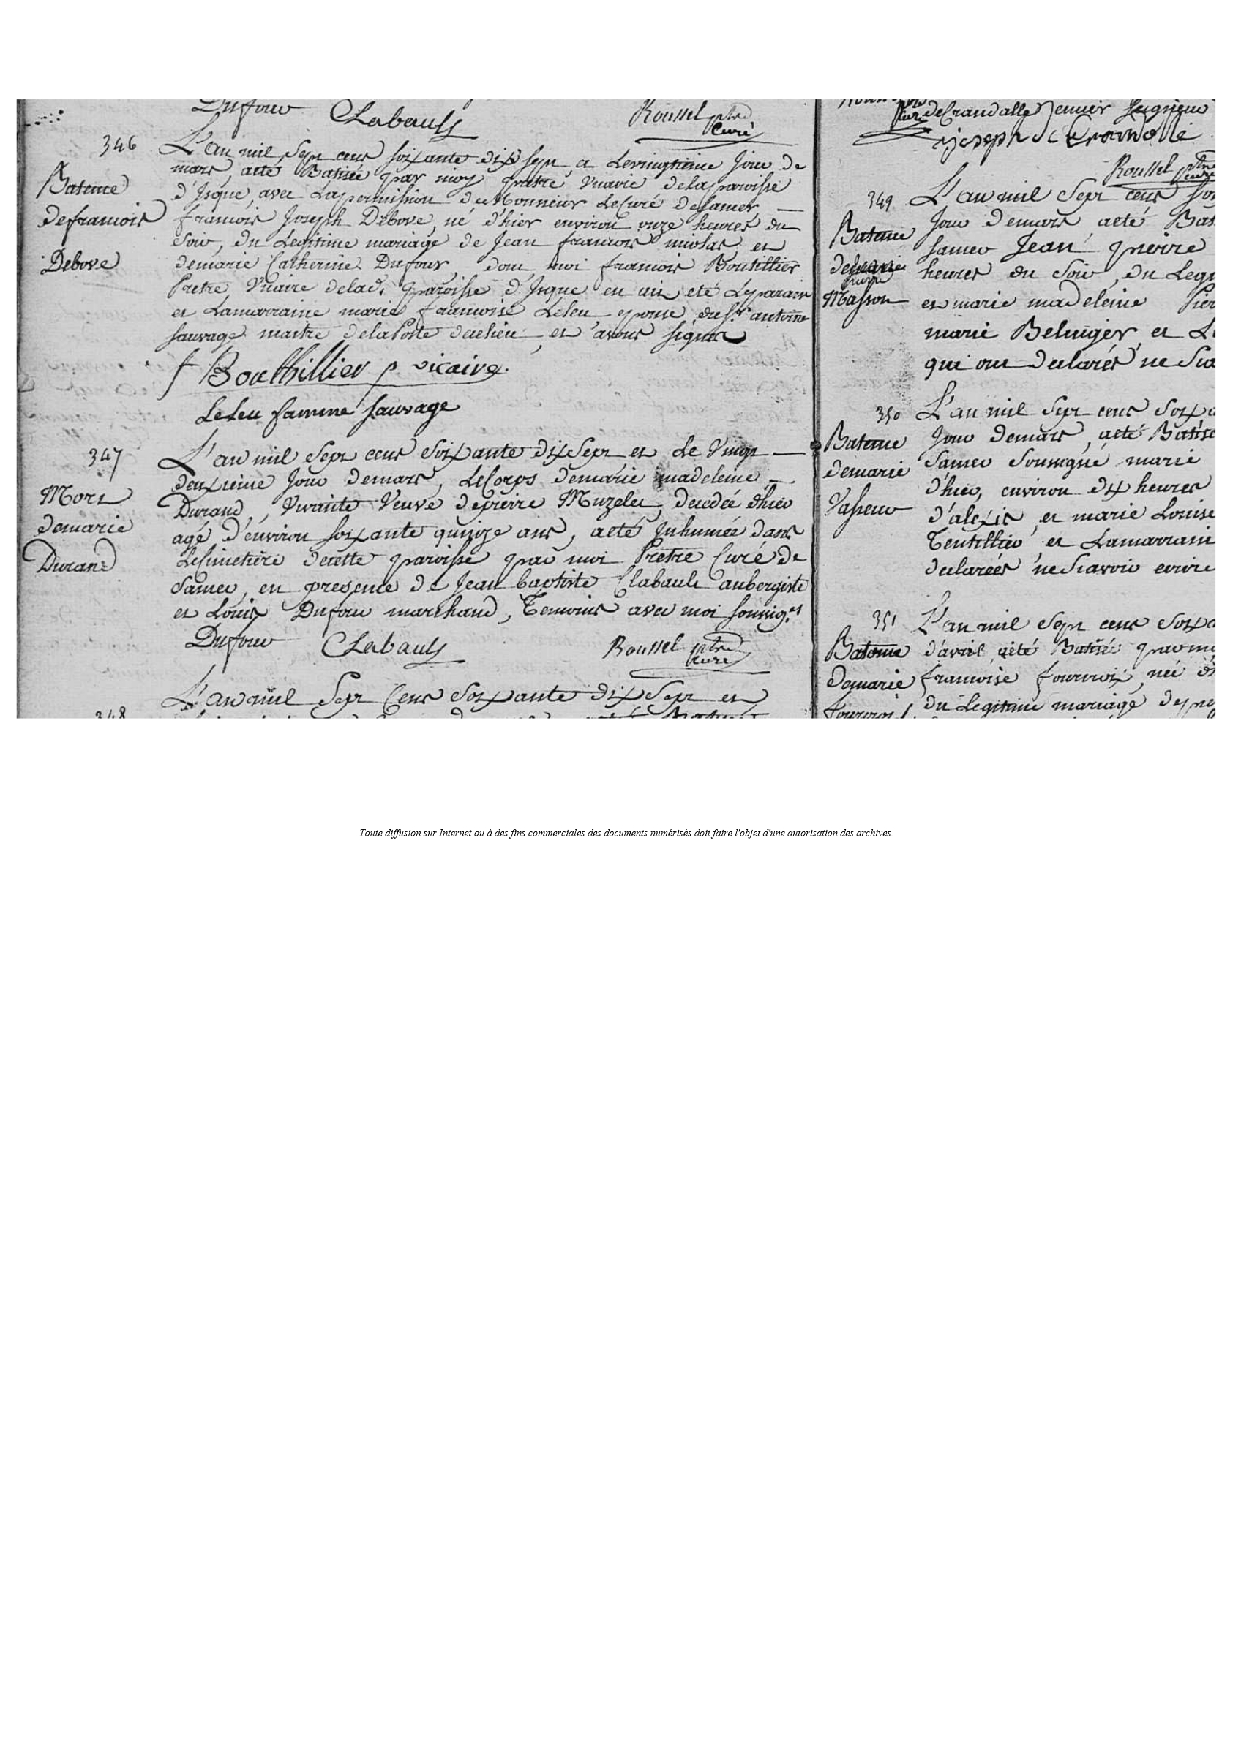 Dufour Clabault Roussel ptre
Curé
346
Bateme
defrancois
Debove
L'an mil Sept cens soixante dix Sept, a Levingtieme Jour de
mars, aeté Batisée par moy pretre vicaire delaparoisse
d'Isque, avec Lapermission de Monsieur LeCuré deSamer
francois Joseph Debove, né d'hier environ onze heures du
Soir, du Legitime mariage de Jean francois nicolas et
demarie Catherine Dufour, dont moi francois Boutillier
Pretre Vicaire deladt. paroisse d'Isque en ait eté Leparain
et Lamarraine marie francoise Leleu epouse dusr. antoine
Sauvage maitre delaPoste deceлieu et avons signé
f Bouthillier p. vicaire.
Leleu famme Sauvage
347
Mort
demarie
Durand
L'an mil Sept cens Soixante dix Sept et Le Vingt
deuxieme Jour demars, LeCorps demarie madeleine
Durand, Vivante Veuve depierre Muzelet, decedée d'hier
agé d'environ Soixante quinze ans, aeté Inhumée dans
Lesimetiere decette paroisse par moi Pretre Curé de
Samer, en presence de Jean baptiste Clabault aubergiste
et Louis Dufour marchand, Temoins avec moi soussig.és
Dufour Clabault Roussel ptre
Curé
348
L'an mil Sept Cens Soixante dix Sept et
de Crandalle Seigneur
joseph
Roussel ptre
Curé
349
Bateme
Masson
L'an mil Sept cens Soi
Jour demars aeté Bat
Samer Jean pierre
heures du Soir, du Legi
et marie madeleine Pier
marie Belinger et L
qui ont declarés ne Sca
350
Bateme
demarie
Vasseur
L'an mil Sept cens Soixa
Jour demars, aeté Batisé
Samer Soussigné marie
d'hier, environ dix heures
d'alexis, et marie Louise
Tentillier, et Lamarraine
declarées ne Scavoir ecrire
351
Bateme
Demarie
fourcroi
L'an mil Sept cens Soixa
d'avril aeté Batisé par mo
francoise fourcroi, née
du Legitime mariage de
Toute diffusion sur Internet ou à des fins commerciales des documents numérisés doit faire l'objet d'une autorisation des archives